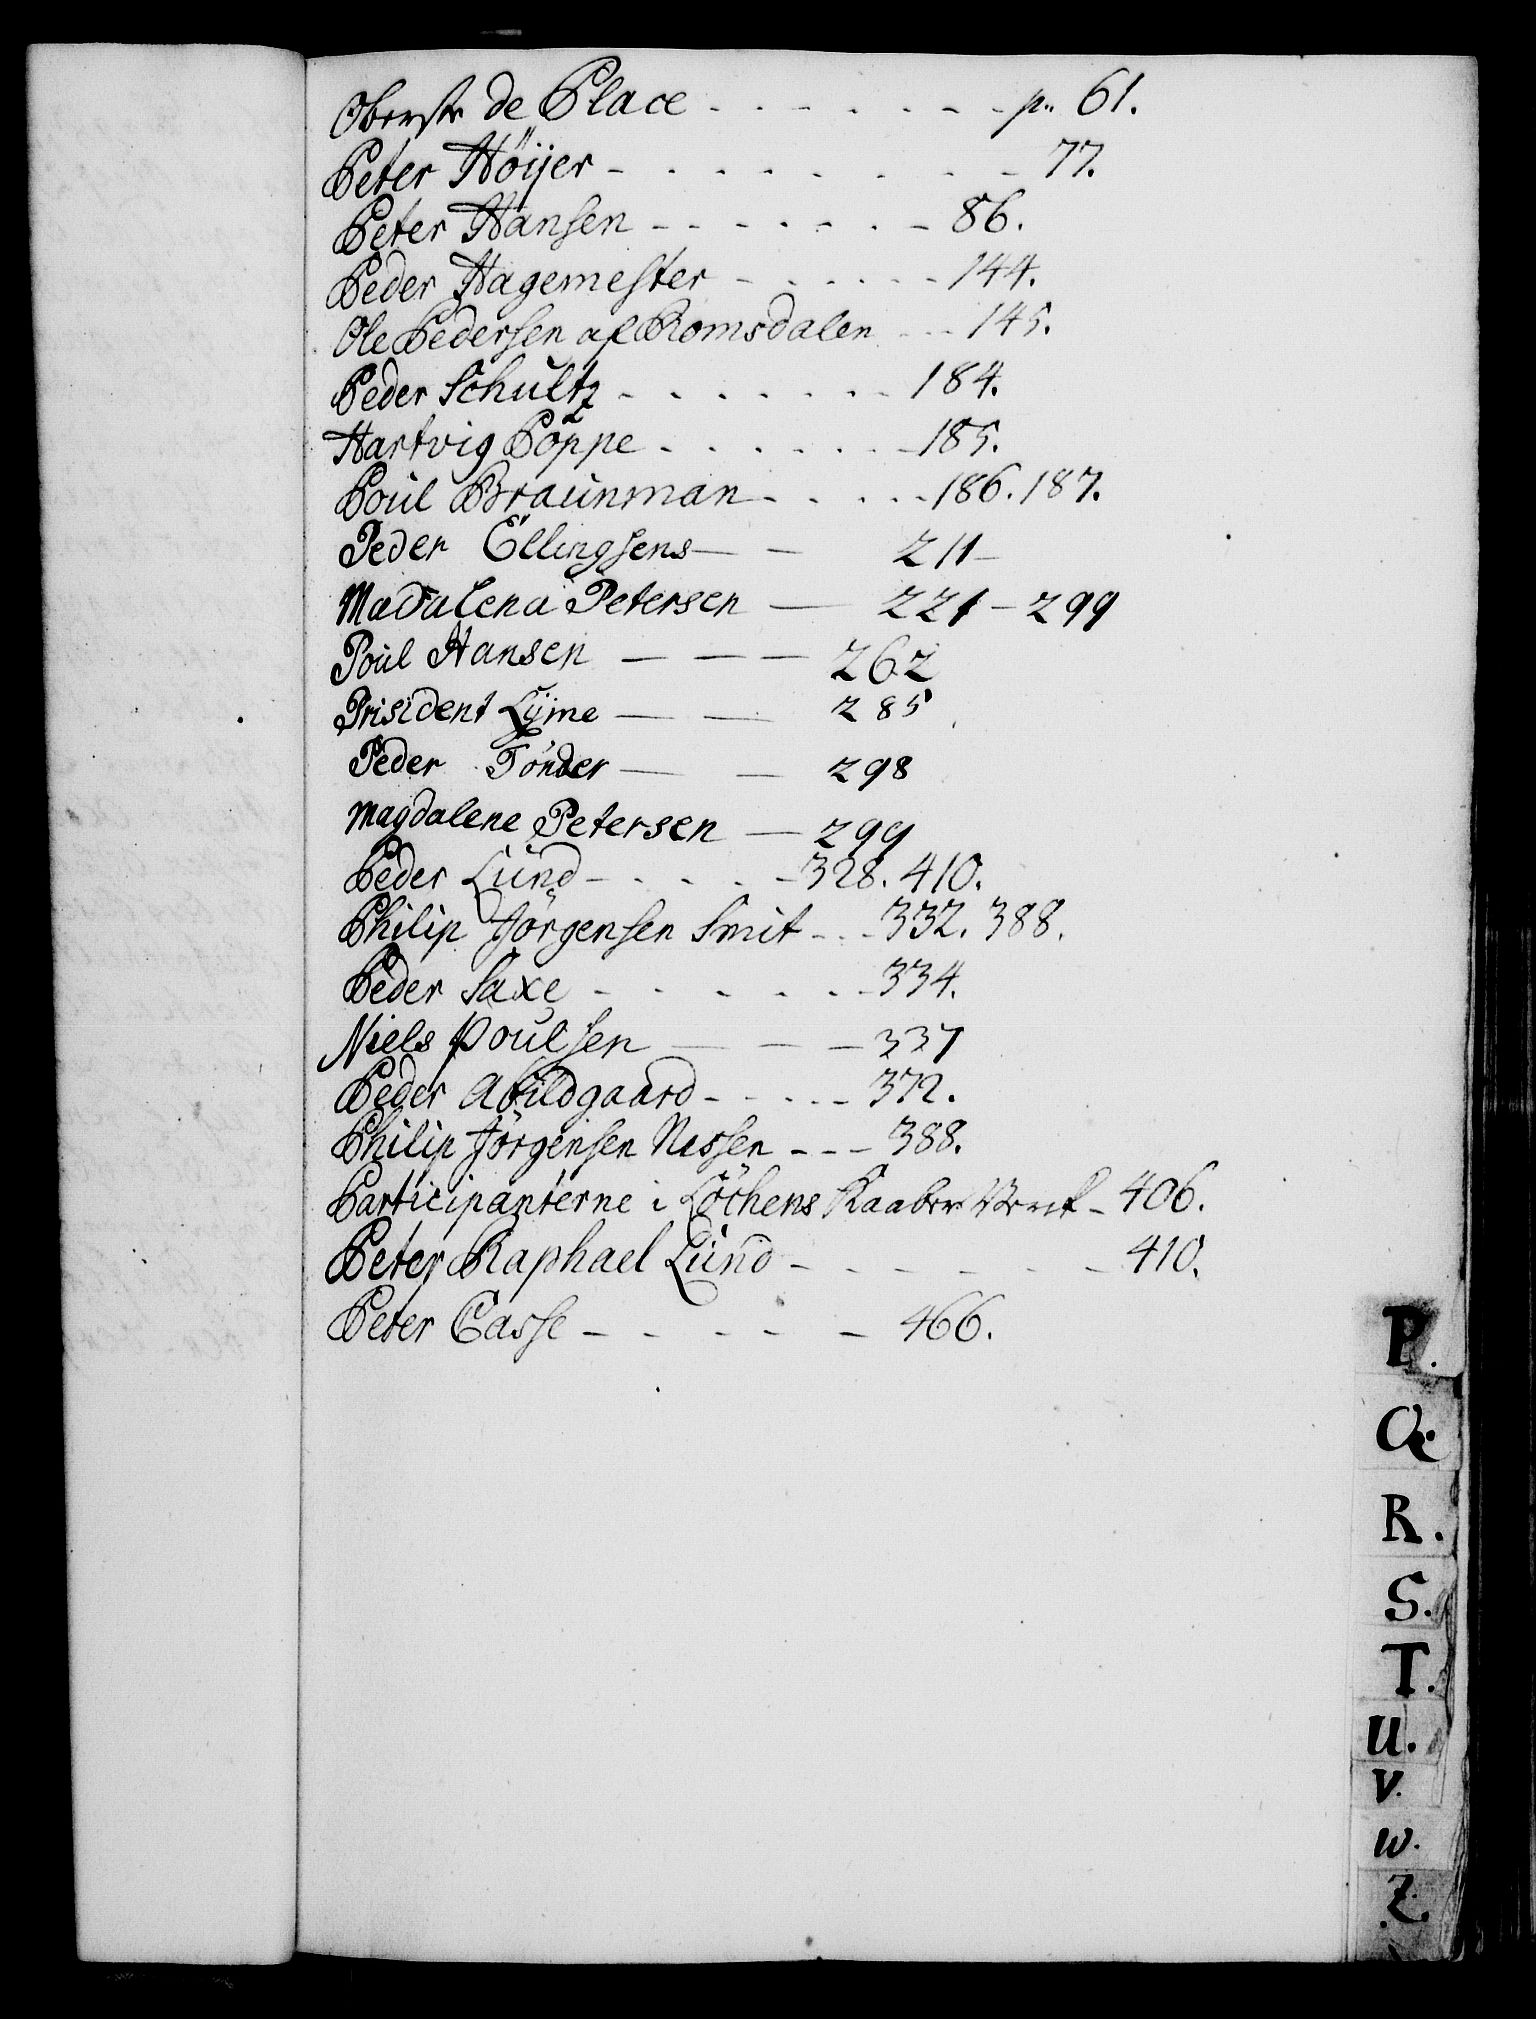 Oberste de Place - - - - - - - p. 61.
Peter Höijer - - - - - - - - 77.
Peter Hansen - - - - - - - 86.
Peder Hagemester - - - - - - 144.
Ole Pedersen af Romsdalen - - - 145.
Peder Schultz - - - - - - - 184.
Hartvig Pöppe - - - - - - - 185.
Poul Braunman - - - - - 186. 187.
Peder Ellingsens — — 211 —
Madalena Petersen — 221 — 299
Poul Hansen — — — 262
Prisident Lyme — — 285
Peder Tönder — — 298
Magdalene Petersen — 299
Peder Lund - - - - - 328. 410.
Philip Jörgensen Smit - - - 332. 388.
Peder Saxe - - - - - - 334.
Niels Poulsen — — — 337
Peder Abildgaard - - - - - 372.
Philip Jörgensen Nissen - - - 388.
Participanterne i Löchens Kaaber Verck - 406.
Peter Raphael Lund - - - - - - 410.
Peter Casse - - - - - 466.
P.
Q.
R.
S.
T.
U.
V.
W.
Z.